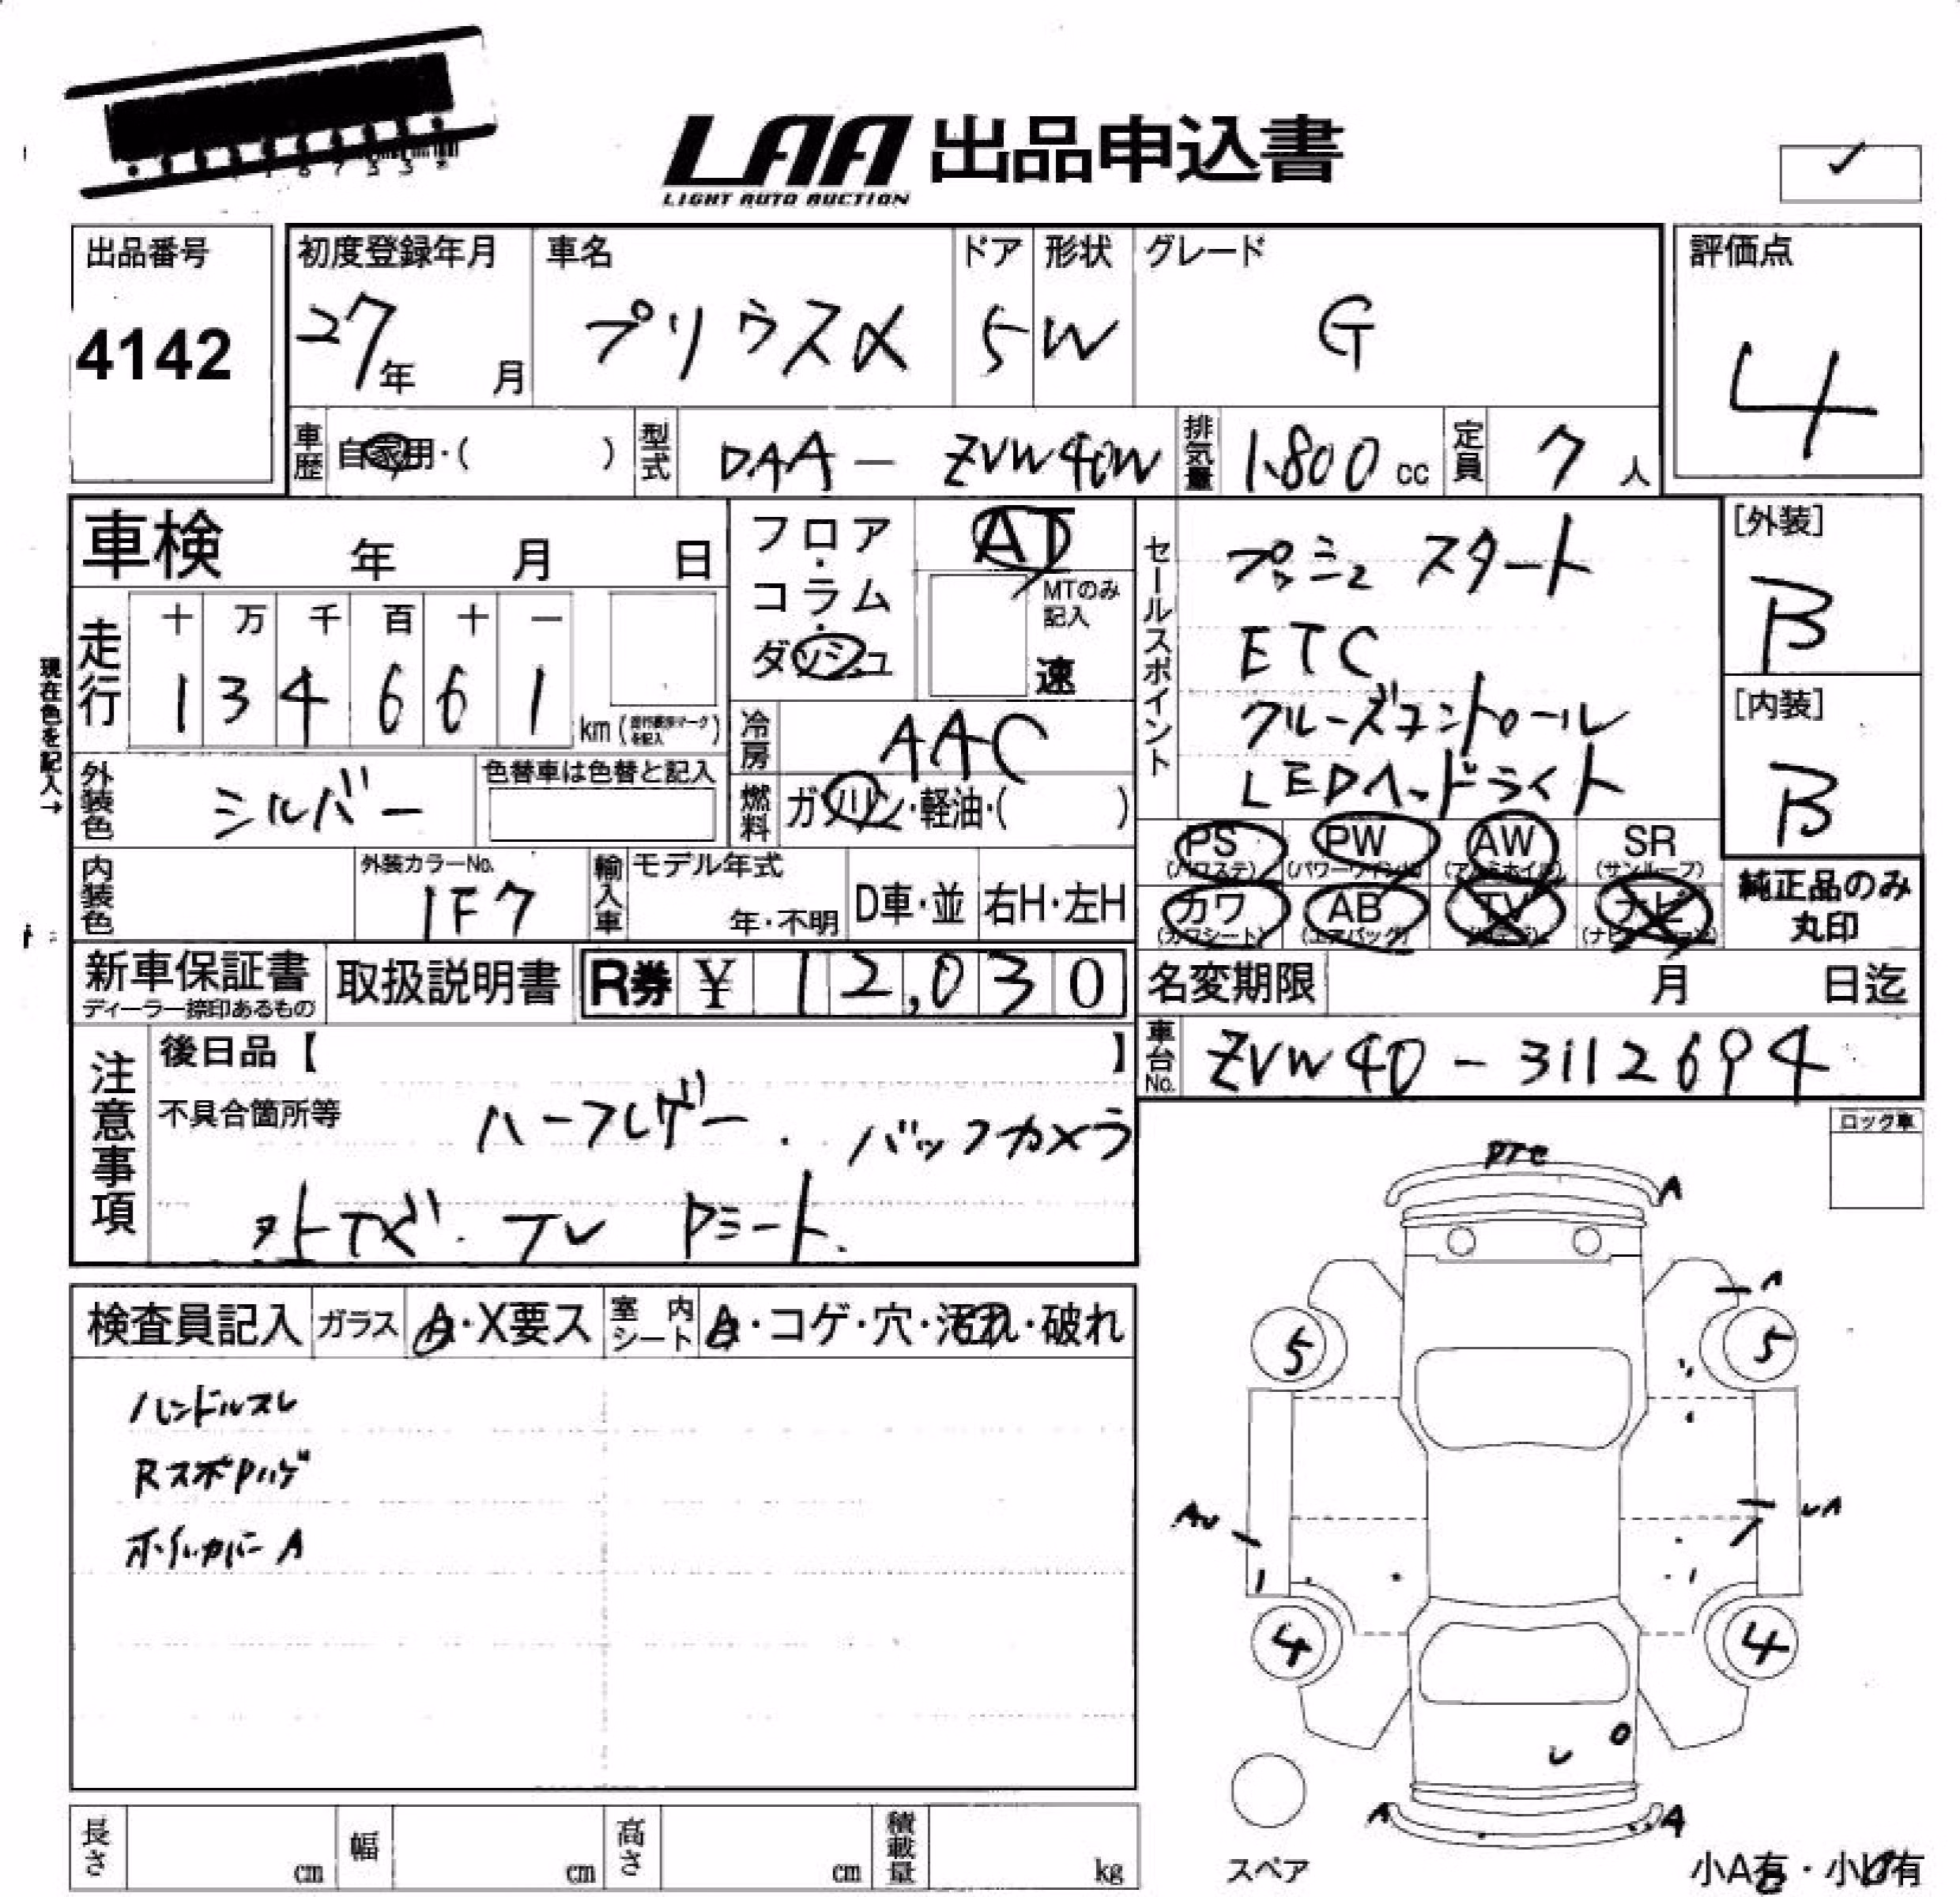 LAA 出品申込書
LIGHT AUTO AUCTION
出品番号
4142
初度登録年月
27年 月
車名
プリウスα
ドア
5
形状
W
グレード
G
評価点
4
車歴 自家用・( )
型式 DAA - ZVW40W
排気量 1,800 cc
定員 7 人
車検 年 月 日
フロア・コラム・ダッシュ
AT
MTのみ記入
速
セールスポイント
プッシュ スタート
ETC
クルーズコントロール
LEDヘッドライト
[外装]
B
[内装]
B
走行
十 万 千 百 十 一
1 3 4 6 6 1
km
現在色を記入→
冷房 AAC
外装色 シルバー
色替車は色替と記入
燃料 ガソリン・軽油・( )
PS PW AW SR
(パワステ) (パワーウインド) (アルミホイル) (サンルーフ)
カワ AB TV ナビ
(カワシート) (エアバッグ)
純正品のみ
丸印
内装色
外装カラーNo.
1F7
輸入車
モデル年式
年・不明
D車・並
右H・左H
新車保証書
ディーラー捺印あるもの
取扱説明書
R券 ¥ 12,030
名変期限 月 日迄
車台No. ZVW40 - 3112694
注意事項
後日品【 】
不具合箇所等
ハーフレザー . バックカメラ
TV Pシート.
ロック車
検査員記入
ガラス A・X要ス
室内シート A・コゲ・穴・汚れ・破れ
ハンドルスレ
RスポPハゲ
ホイルカバーA
A
A
5
5
UA
4
4
A
A
スペア
小A有・小U有
長さ cm
幅 cm
高さ cm
積載量 kg